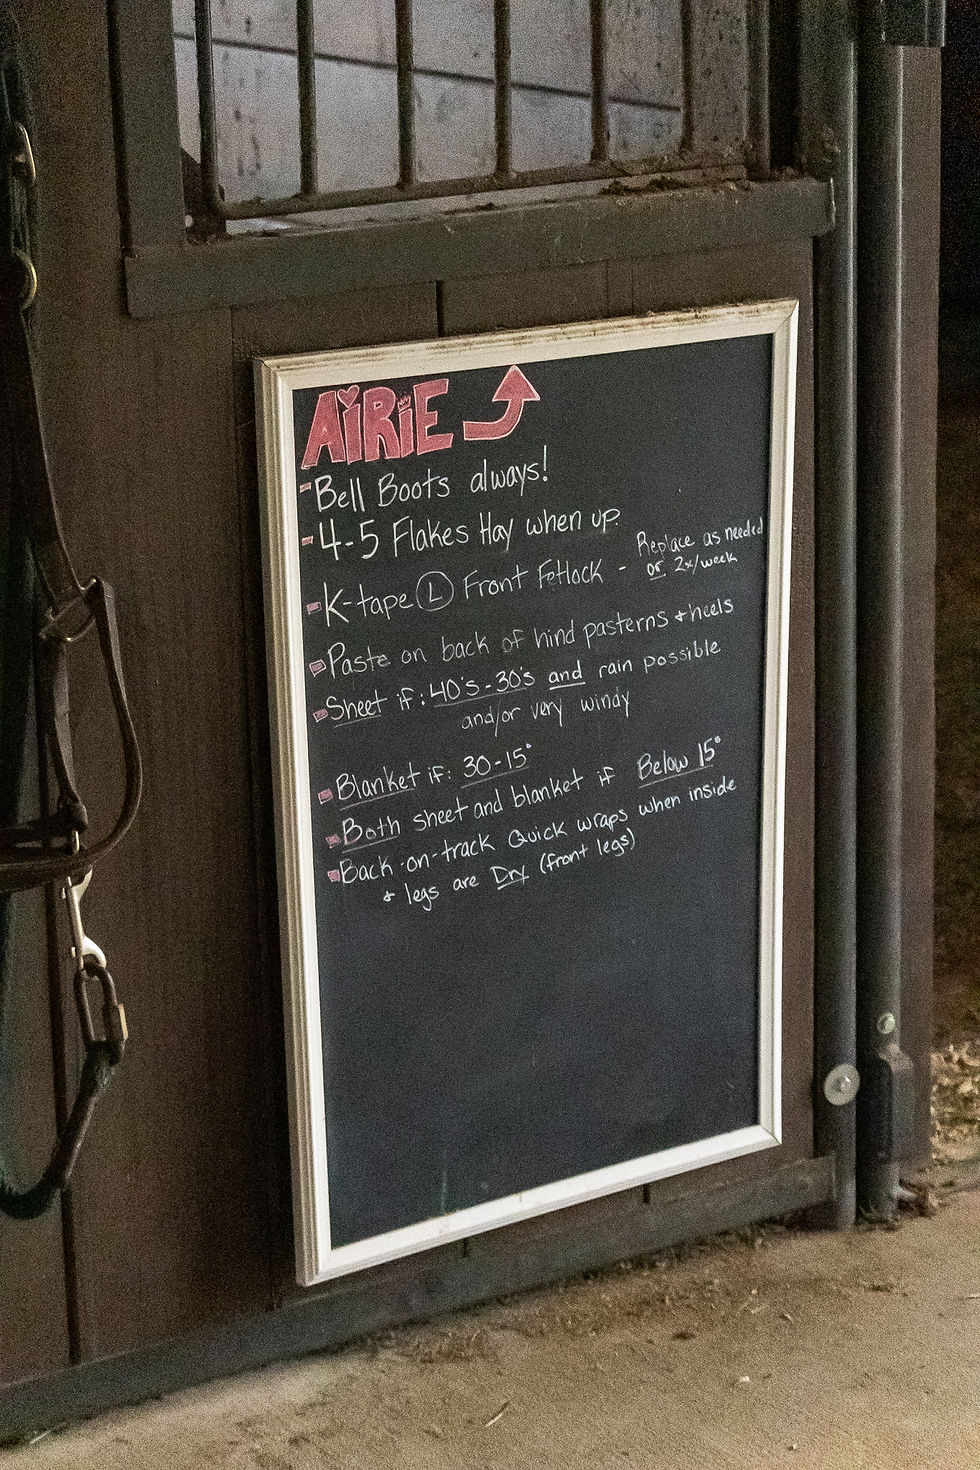 AiRiE
- Bell Boots always!
- 4-5 Flakes Hay when up.
- K-tape (L) Front Fetlock - Replace as needed
or 2x/week
- Paste on back of hind pasterns + heels
- Sheet if: 40's-30's and rain possible
and/or very windy
- Blanket if: 30-15°
- Both sheet and blanket if Below 15°
- Back-on-track Quick wraps when inside
+ legs are Dry (front legs)